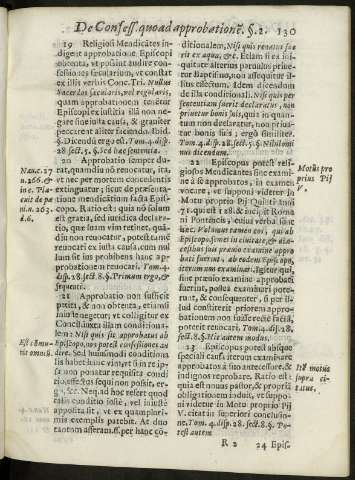 De Confess. quoad approbationē. §. 2. 130
19 Religiosi Mendicātes in-
digent approbatione Episcopi
obtenta, vt possint audire con-
fessiones sæcularium, vt constat
ex illis verbis Conc. Tri. Nullus
Sacerdos sæcularis, vel regularis,
quam approbationem tenētur
Episcopi ex iustitia illā non ne-
gare sine iusta causa, & graniter
peccarent aliter faciendo. Ibid.
§. Dicendū ergo est. Tom. 4. disp.
28. sect. 7. §. Sed hac sententia.
20 Approbatio semper du-
rat, quamdiu nō reuocatur, ita,
vt nec per mortem concedentis
extinguatur; sicut de præsenta-
tione mendicātium facta Epis-
copo. Ratio est: quia nō solum
est gratia, sed iuridica declara-
tio, quæ suam vim retinet, quā-
diu non reuocatur, potest tamē
reuocari ex iusta causa, cum nul-
lum sit ius prohibens hanc ap-
probationem reuocari. Tom. 4.
disp. 28. sect. 8. §. Primum ergo, &
sequenti.
21 Approbatio non sufficit
petita, & non obtenta, etiamsi
iniuste negetur; vt colligitur ex
Concil. iuxta illam conditiona-
lem: Nisi quis sit approbatus ab
Episcopo, nos potest confessiones au-
dire. Sed huiusmodi conditiona
lis habet hanc vim, vt si in re ip-
sa non ponatur requisita condi
tio, effectus sequi non possit, er-
go, &c. Neq. ad hoc refert quod
talis conditio iuste, vel iniuste
apposita sit, vt ex quamplurí-
mis exemplis patebit. At duo
tantom asseram. ss. per hanc cō-
ditionalem, Nisi quis renatus fue
rit ex aqua, &c. Etiam si ex ini-
quitate alterius paruulus priue-
tur Baptismo, non assequetur il-
lius effectum. Idem dicendum
de illa conditionali. Nisi quis per
sententiam fuerit declaratus, non
priuetur bonis suis, quia in quan-
tum non declaratur, non priua-
tur bonis suis; ergo similiter.
Tom. 4. disp. 28. sect. 5. §. Nihilomi
nus dicendum.
22 Episcopus potest reli-
giosos Mendicantes sine exami-
ne à se approbatos, in examen
vocare, vt supponi videtur in
Motu proprio Pij Quinti anni
71. quod est 18. & incipit Roma
ni Pontificis, cuius verba sunt
hæc. Volumus tamen eos, qui ab
Episcopo semel in ciuitate, & diœ-
cesibus suis præuio examine appro
bati fuerint, ab eodem Episcopo,
iterum non examinari. Igitur qui,
sine præuio examine approbati
fuerint, postea examinari pote-
runt, & consequenter, si per il-
lud constiterit priorem appro-
bationem non iuste recte factā,
poterit reuocari. Tom. 4. disp. 28.
sect. 8. §. Hic autem motus.
23 Episcopus potest absque
speciali causa iterum examinare
approbatos à suo antecessore, &
indignos reprobare. Ratio est:
quia est nouus pastor, & propriā
obligationem induit, vt suppo-
ni videtur in Motu proprio Pij
V. citat. in superiori conclusio-
ne. Tom. 4. disp. 28. sect. 8. §. Po-
test autem
R 2 24 Epis.
Motus pro
prius Pij
V.
Itē motus
supra ci-
tatus.